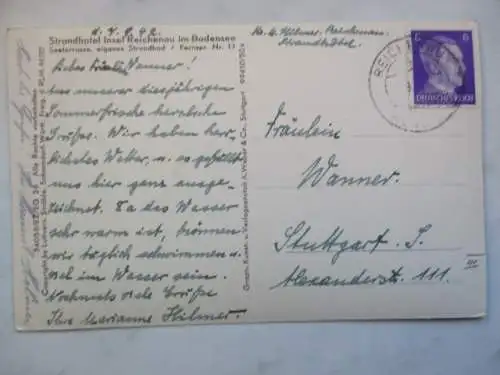 d. 4. 8. 42.
Strandhotel Insel Reichenau im Bodensee
Seeterrasse, eigenes Strandbad / Fernspr. Nr. 13
Liebes Fräulein Wanner!
Aus unserer diesjährigen
Sommerfrische herzliche
Grüße. Wir haben herr-
lichstes Wetter, u. es gefällt
uns hier ganz ausge-
zeichnet. Da das Wasser
sehr warm ist, können
wir täglich schwimmen u.
viel im Wasser sein.
Nochmals viele Grüße
Ihre Marianne Hilmer.
Reichenau
Strandhotel
REICHENAU
DEUTSCHES REICH
6
Fräulein
Wanner.
Stuttgart. S.
Alexanderstr. 111.